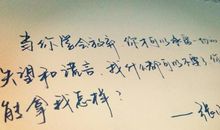 当你学会放弃 你才可以承受一切的
失望和谎言.我什么都可以不要了 你
能拿我怎样？
——张